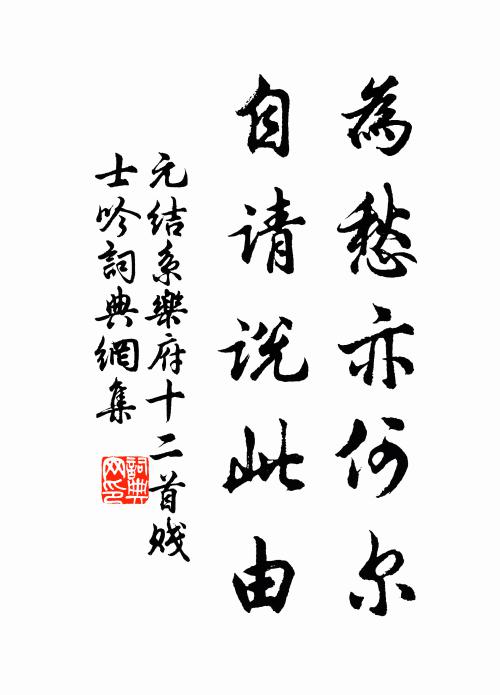 為愁亦何尔
自请说此由
元结系樂府十二首贱
士吟詞典網集
詞典
网印